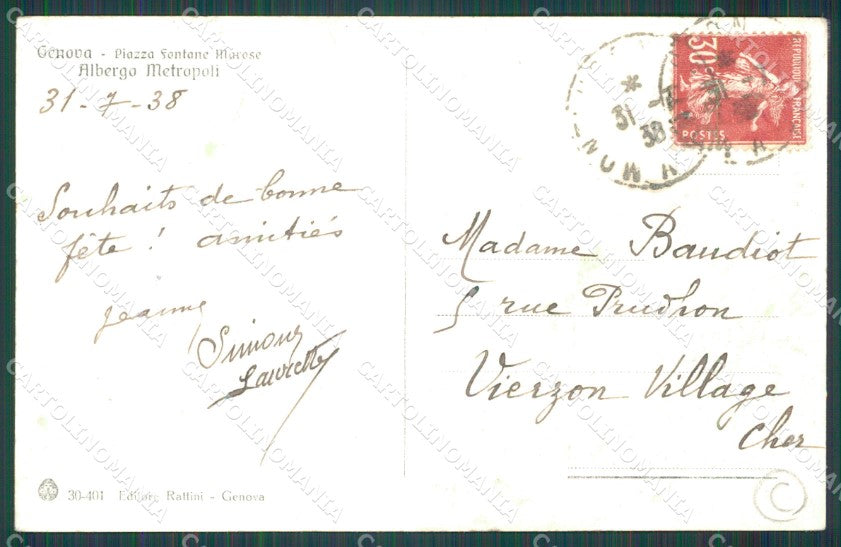 Genova - Piazza Fontane Marose
Albergo Metropoli
31-7-38
Souhaits de bonne
fête ! amitiés
Jeanne
Simone
Laurette
30-401 Editore Rattini - Genova
30c
REPUBLIQUE FRANÇAISE
POSTES
31 -7
38
Madame Baudiot
5 rue Prudhon
Vierzon Village
Cher
C
CARTOLINOMANIA